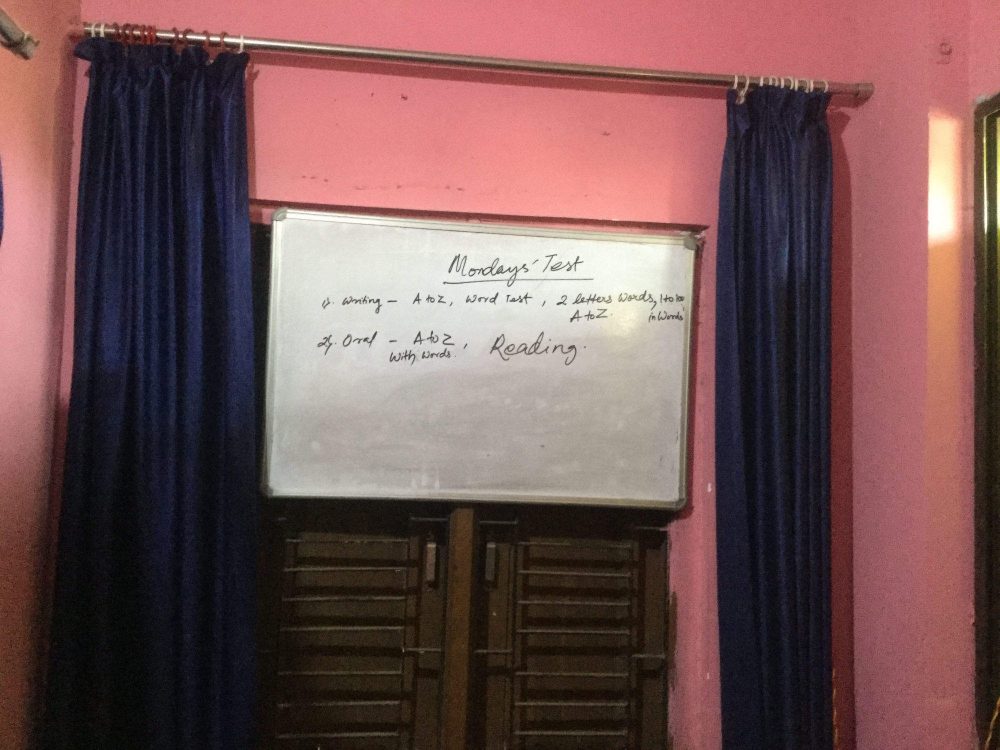 Mondays' Test
1). Writing - A to Z, Word Test, 2 letters Words, 1 to 100
A to Z. in Words
2). Oral - A to Z, Reading.
With Words.